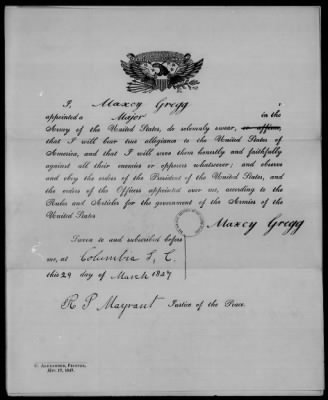 I, Maxcy Gregg
appointed a Major in the
Army of the United States, do solemnly swear, or affirm,
that I will bear true allegiance to the United States of
America, and that I will serve them honestly and faithfully
against all their enemies or opposers whatsoever; and observe
and obey the orders of the President of the United States, and
the orders of the Officers appointed over me, according to the
Rules and Articles for the government of the Armies of the
United States
Maxcy Gregg
Sworn to and subscribed before
me, at Columbia S, C.
this 29 day of March 1847
R P Mayrant Justice of the Peace.
C. Alexander, Printer,